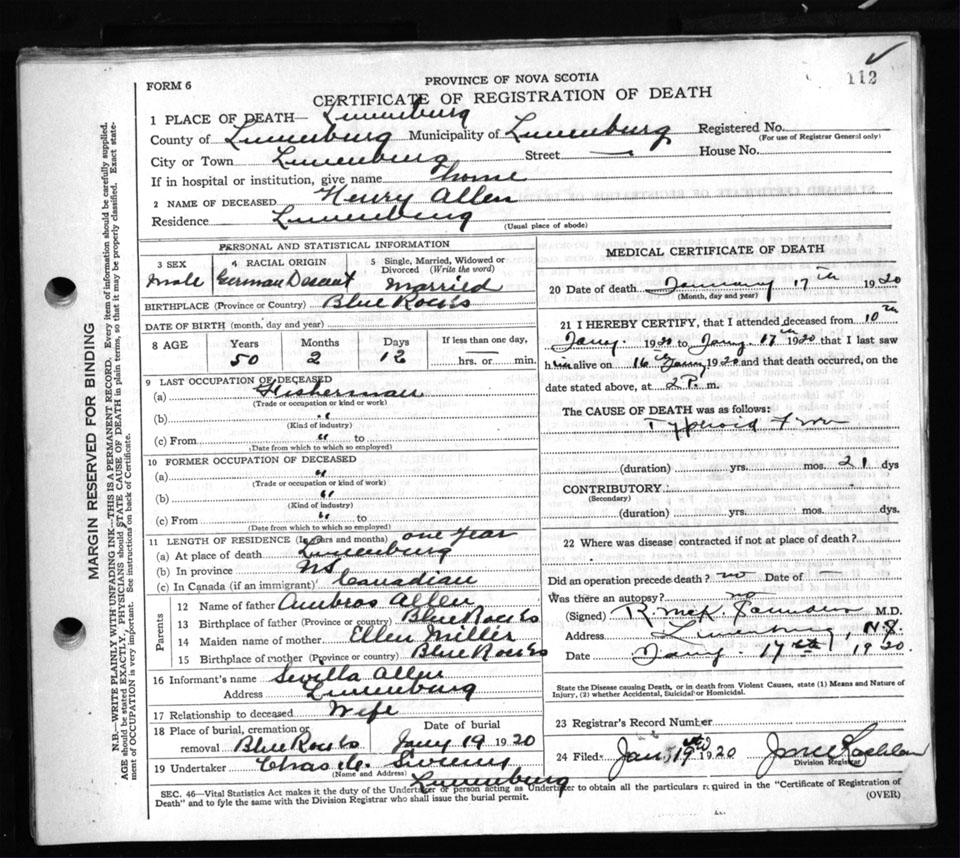 112
FORM 6
PROVINCE OF NOVA SCOTIA
CERTIFICATE OF REGISTRATION OF DEATH
1 PLACE OF DEATH— Lunenburg
County of Lunenburg Municipality of Lunenburg Registered No.
(For use of Registrar General only)
City or Town Lunenburg Street — House No.
If in hospital or institution, give name home
2 NAME OF DECEASED Henry Allen
Residence Lunenburg
(Usual place of abode)
PERSONAL AND STATISTICAL INFORMATION
3 SEX 4 RACIAL ORIGIN 5 Single, Married, Widowed or Divorced (Write the word)
Male German Descent Married
BIRTHPLACE (Province or Country) Blue Rocks
DATE OF BIRTH (month, day and year)
8 AGE Years Months Days If less than one day,
50 2 12 hrs. or min.
9 LAST OCCUPATION OF DECEASED
(a) Fisherman
(Trade or occupation or kind or work)
(b) "
(Kind of industry)
(c) From " to
(Date from which to which so employed)
10 FORMER OCCUPATION OF DECEASED
(a) "
(Trade or occupation or kind or work)
(b) "
(Kind of industry)
(c) From " to
(Date from which to which so employed)
11 LENGTH OF RESIDENCE (In years and months) one Year
(a) At place of death Lunenburg
(b) In province NS
(c) In Canada (if an immigrant) Canadian
Parents
12 Name of father Ambros Allen
13 Birthplace of father (Province or country) Blue Rocks
14 Maiden name of mother Ellen Miller
15 Birthplace of mother (Province or country) Blue Rocks
16 Informant's name Sevilla Allen
Address Lunenburg
17 Relationship to deceased Wife
18 Place of burial, cremation or removal Date of burial
Blue Rocks Jany 19 1920
19 Undertaker Chas
(Name and Address) Lunenburg
MEDICAL CERTIFICATE OF DEATH
20 Date of death January 17th 1920
(Month, day and year)
21 I HEREBY CERTIFY, that I attended deceased from 10th
Jany. 1920 to Jany. 17th 1920 that I last saw
him alive on 16th Jany 1920 and that death occurred, on the
date stated above, at 2 P. m.
The CAUSE OF DEATH was as follows:
Typhoid Fever
(duration) yrs. mos. 21 dys
CONTRIBUTORY
(Secondary)
(duration) yrs. mos. dys.
22 Where was disease contracted if not at place of death?
Did an operation precede death? no Date of —
Was there an autopsy? no
(Signed) R. McK. M.D.
Address Lunenburg, N.S.
Date Jany. 17th 1920.
State the Disease causing Death, or in death from Violent Causes, state (1) Means and Nature of
Injury, (2) whether Accidental, Suicidal or Homicidal.
23 Registrar's Record Number
24 Filed Jan, 19 1920
Division Registrar
SEC. 46—Vital Statistics Act makes it the duty of the Undertaker or person acting as Undertaker to obtain all the particulars required in the "Certificate of Registration of
Death" and to fyle the same with the Division Registrar who shall issue the burial permit.
(OVER)
MARGIN RESERVED FOR BINDING
N.B.—WRITE PLAINLY WITH UNFADING INK—THIS IS A PERMANENT RECORD. Every item of information should be carefully supplied.
AGE should be stated EXACTLY, PHYSICIANS should STATE CAUSE OF DEATH in plain terms, so that it may be properly classified. Exact state-
ment of OCCUPATION is very important. See instructions on back of Certificate.